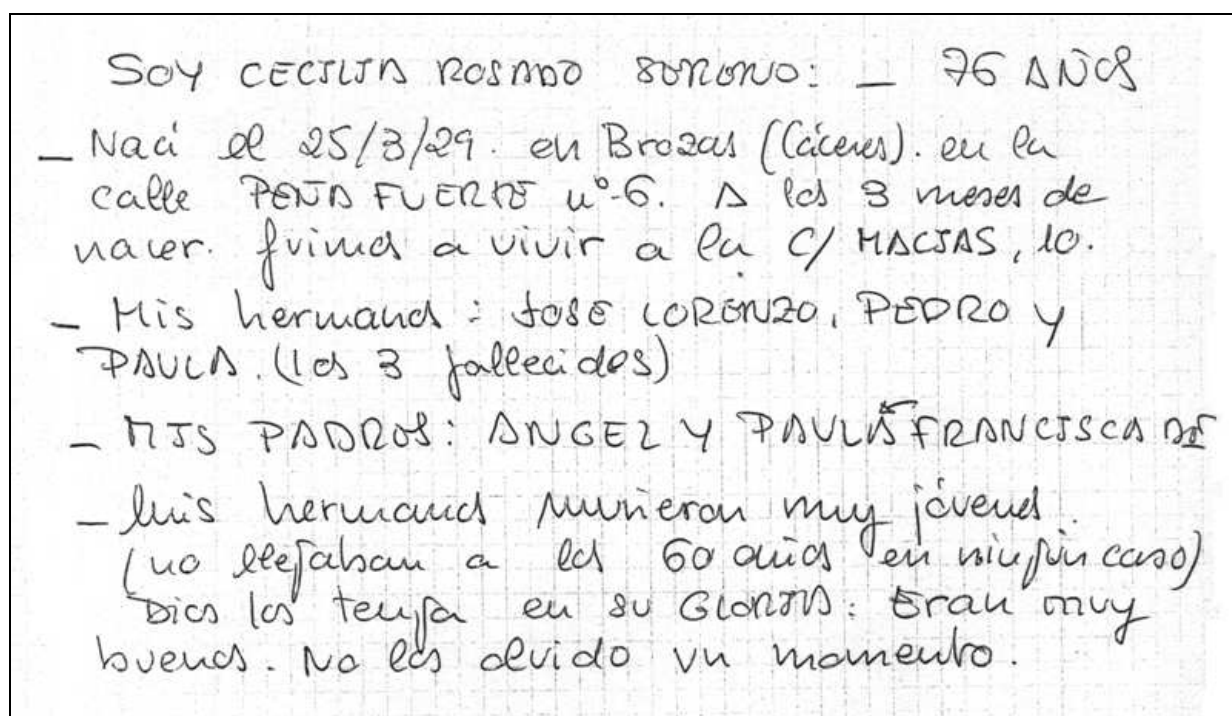 SOY CECILIA ROSADO SORORIO: _ 76 AÑOS
_ Nací el 25/3/29. en Brozas (Cáceres). en la
calle PEÑA FUERTE nº 6. A los 3 meses de
nacer. fuimos a vivir a la C/ MACIAS, 10.
_ Mis hermanos: JOSE LORENZO, PEDRO Y
PAULA. (los 3 fallecidos)
_ MIS PADRES: ANGEL Y PAULA FRANCISCA
_ Mis hermanos murieron muy jóvenes.
(no llegaban a los 60 años en ningún caso)
Dios los tenga en su GLORIA: Eran muy
buenos. No los olvido un momento.